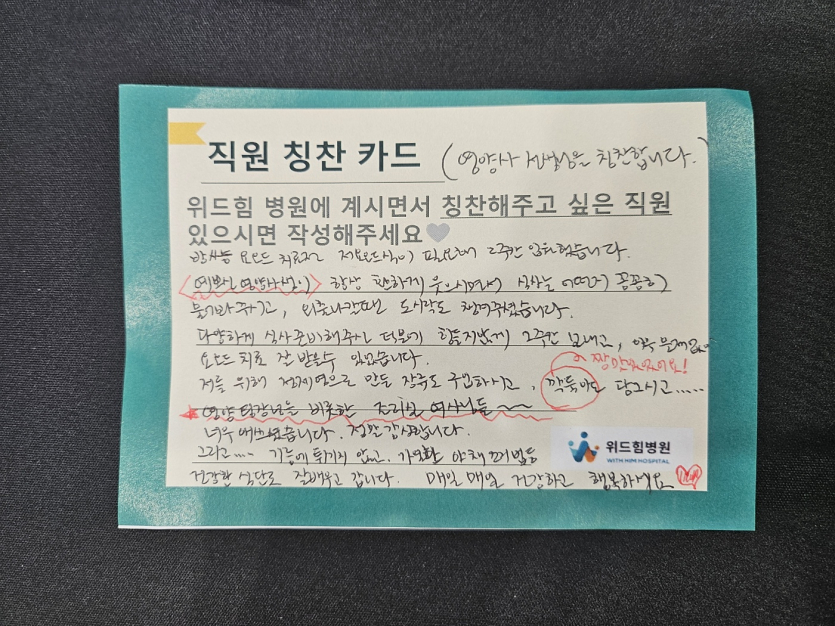 직원 칭찬 카드 (영양사 선생님을 칭찬합니다.)
위드힘 병원에 계시면서 칭찬해주고 싶은 직원
있으시면 작성해주세요
방사능 요오드 치료전 저요오드식이 필요해 2주간 입원했습니다.
영양사선생님이 항상 환하게 웃으시면서 식사는 어떤지 꼼꼼히
물어봐주시고, 외출나갈때 도시락도 챙겨주셨습니다.
다양하게 식사준비해주신 덕분에 힘들지않게 2주간 보내고, 아주
요오드 치료 잘 받을수 있었습니다.
짱 맛있었어요!
저를 위해 정제염으로 만든 장류도 구입하시고, 깍두기도 담그시고.....
영양팀장님을 비롯한 조리실 여사님들~~
너무 애쓰셨습니다. 정말 감사합니다.
그리고.... 기름에 튀기지 않고, 야채 찌법등
위드힘병원
WITH HIM HOSPITAL
건강한 식단도 잘배우고 갑니다. 매일매일 건강하고 행복하세요